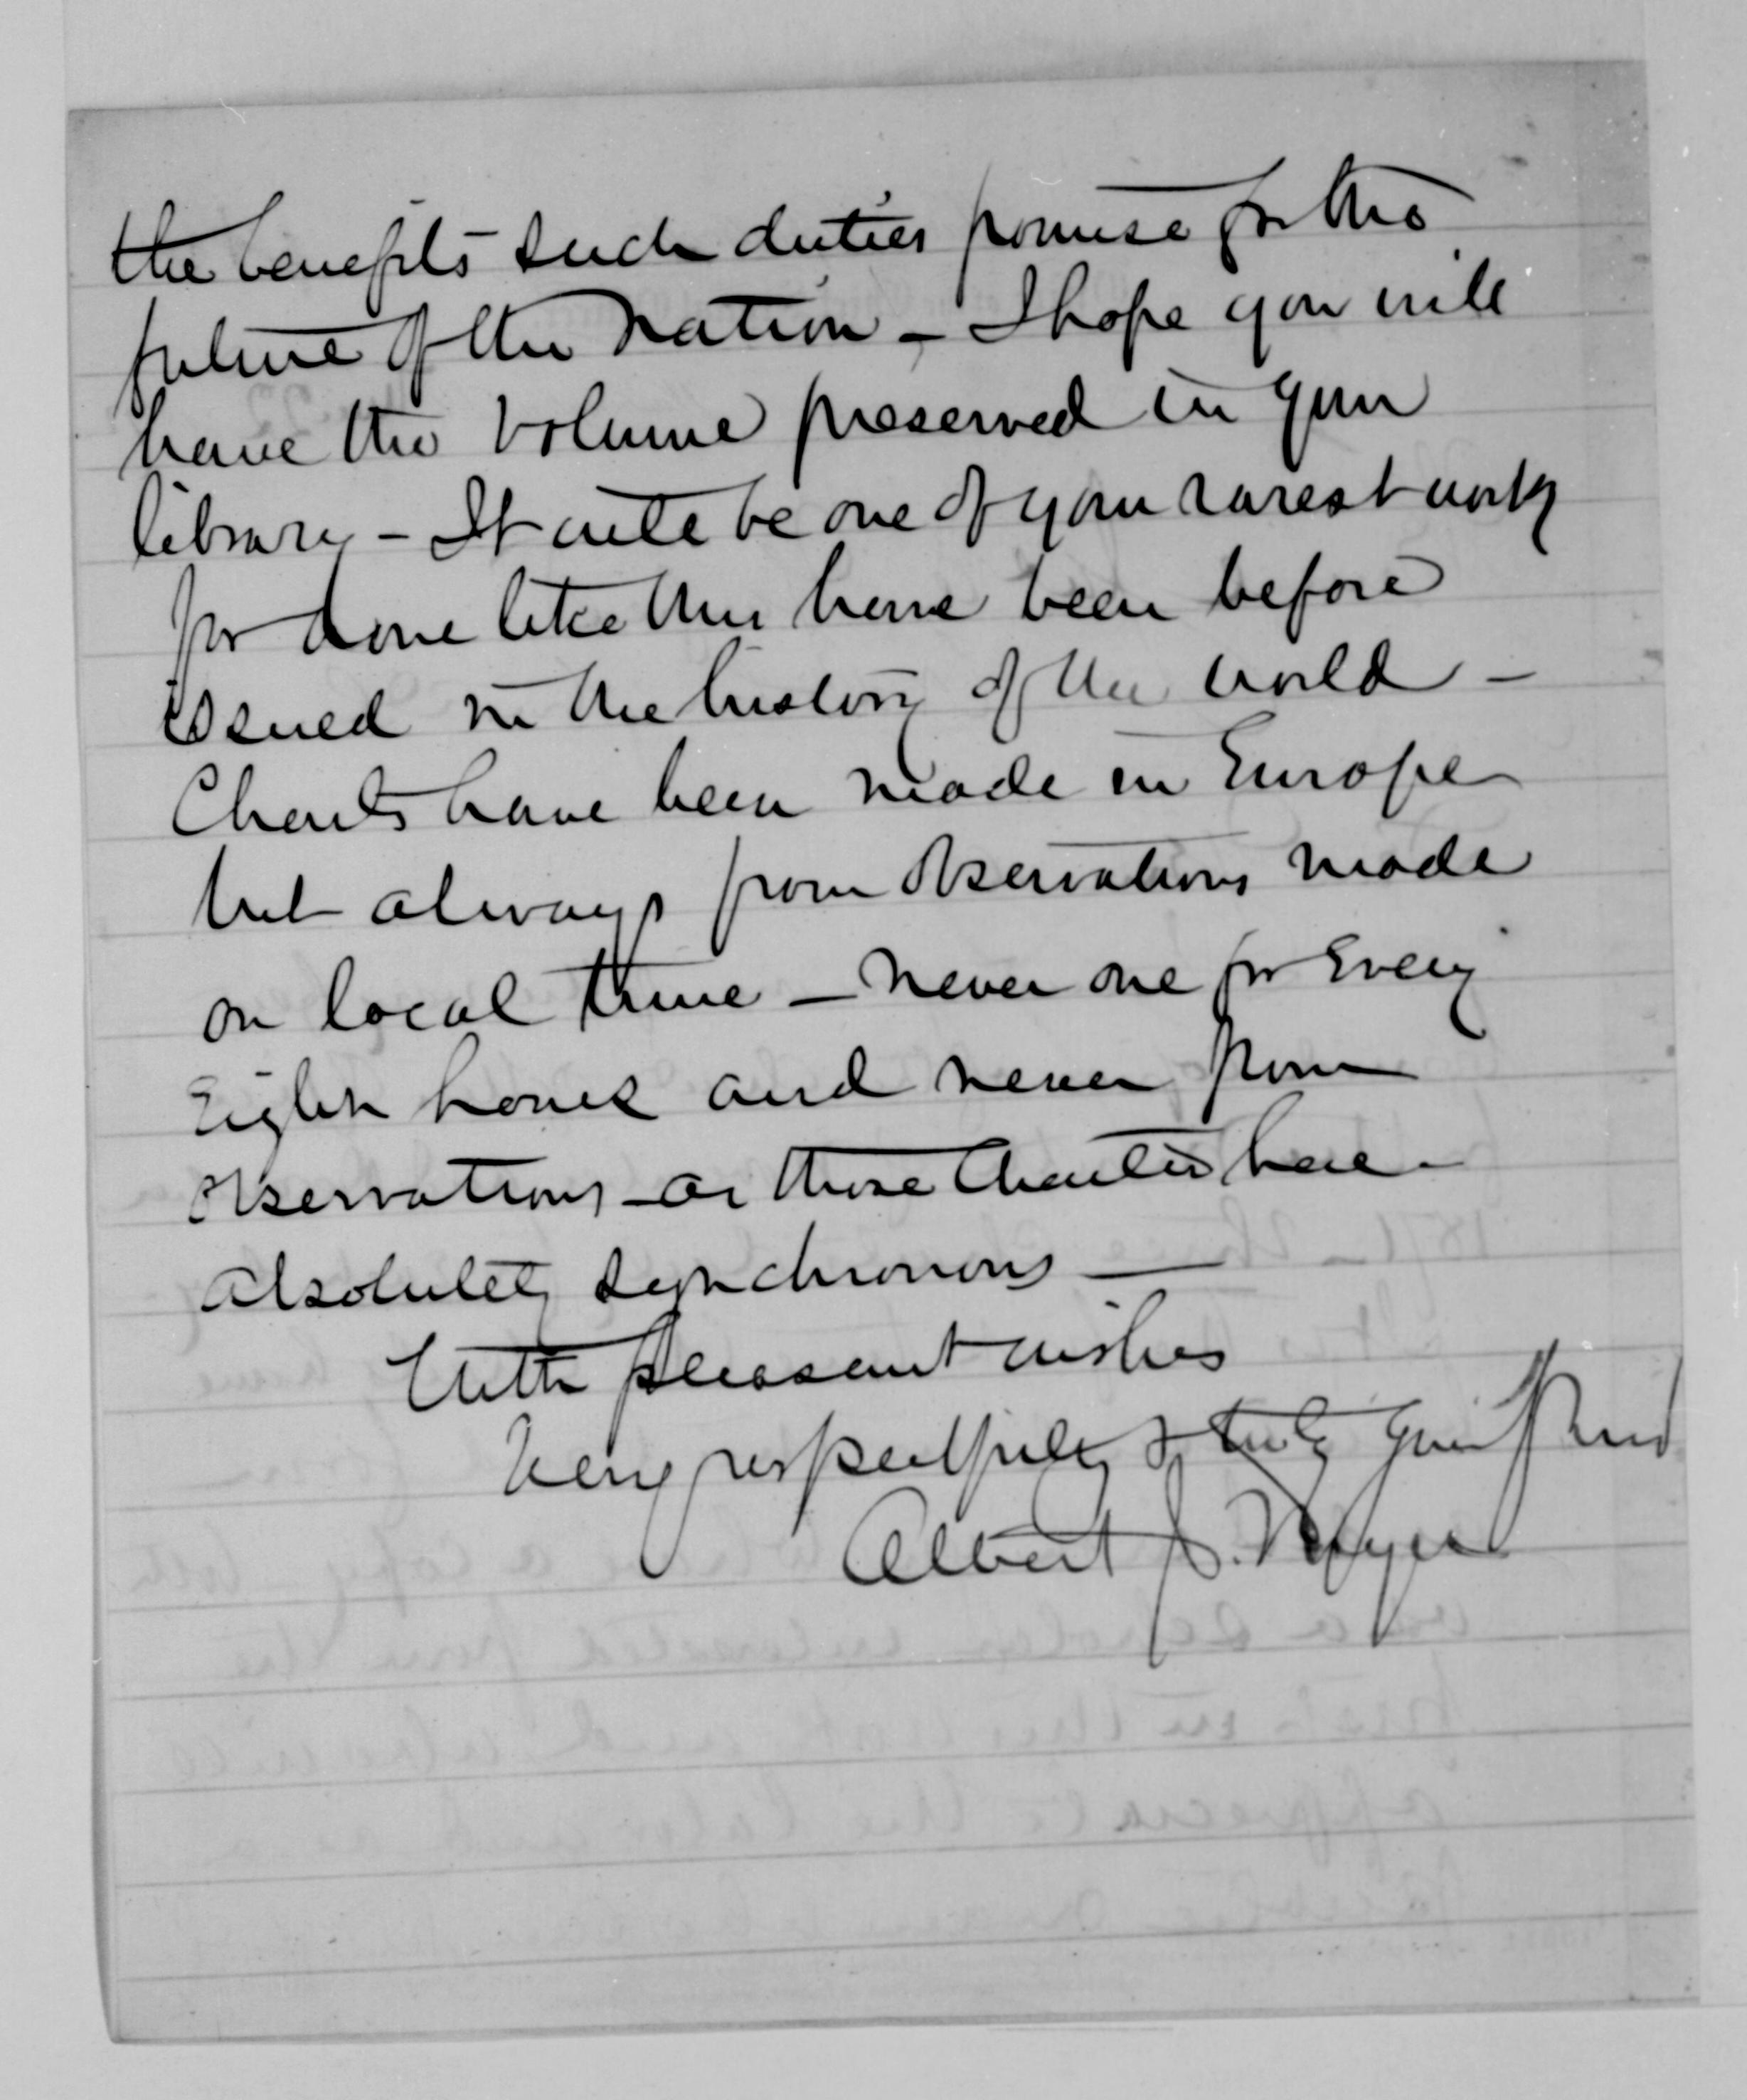 the benefits such duties promise for the
future of the Nation – I hope you will
have the volume preserved in your
library – It will be one of your rarest works
for none like this have been before
issued in the history of the world –
Charts have been made in Europe
but always from observations made
on local time – never one for Every
Eight hours and never from
observations – as those Charted here –
absolutely synchronous –
With pleasant wishes
Very respectfully & truly your friend
Albert J. Myer